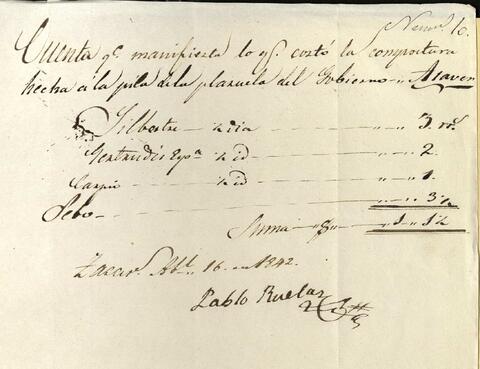 Num.º 10.
Cuenta q.e manifiesta lo q.e costó la compostura
hecha á la pila de la plazuela del Gobierno " A saver
Silbestre — ½ dia — " " 3 rr.s
Gertrudis Esp.a ½ id — " " 2.
Carpio ½ id — " " 1.
Sebo — " " 3½
Suma " $ " 1 " 1½
Zacat.s Ab.l 16 de 1842.
Pablo Ruelas